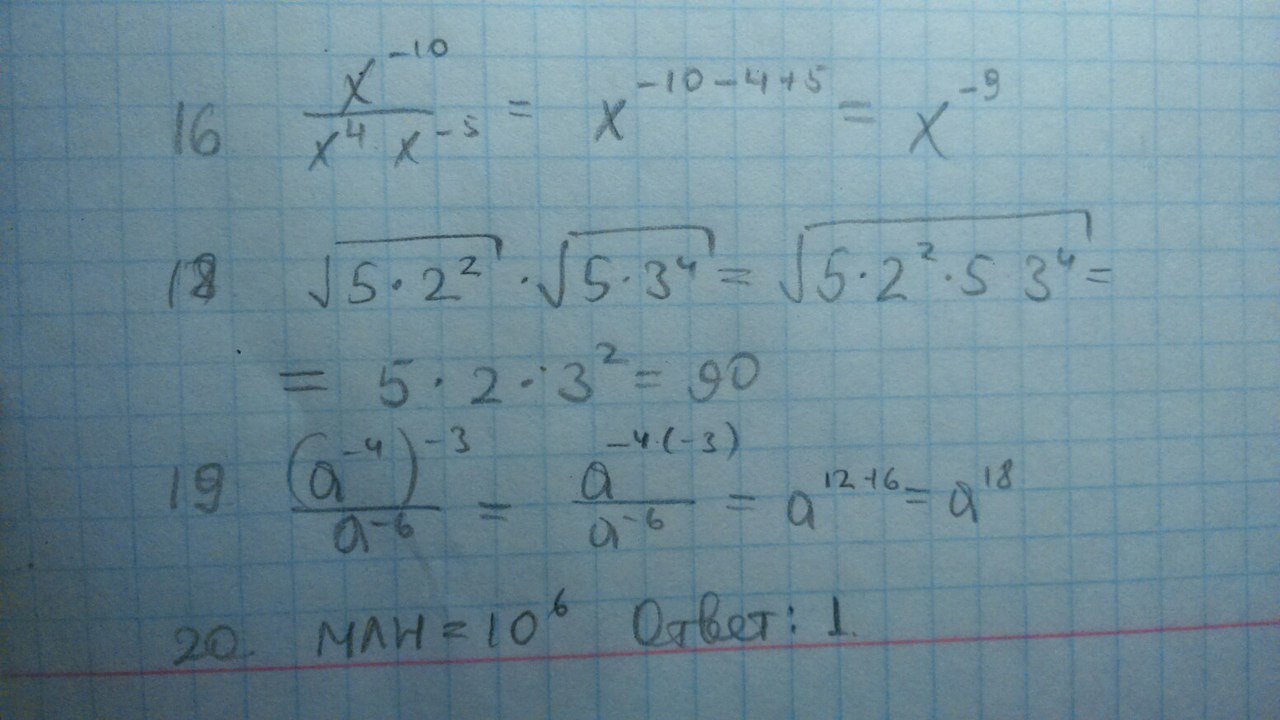 16 x^{-10} / (x^4 x^{-5}) = x^{-10-4+5} = x^{-9}
18 √(5·2²) · √(5·3⁴) = √(5·2²·5 3⁴) =
= 5·2·3² = 90
19 (a^{-4})^{-3} / a^{-6} = a^{-4·(-3)} / a^{-6} = a^{12+6} = a^{18}
20. млн = 10⁶ Ответ: 1.